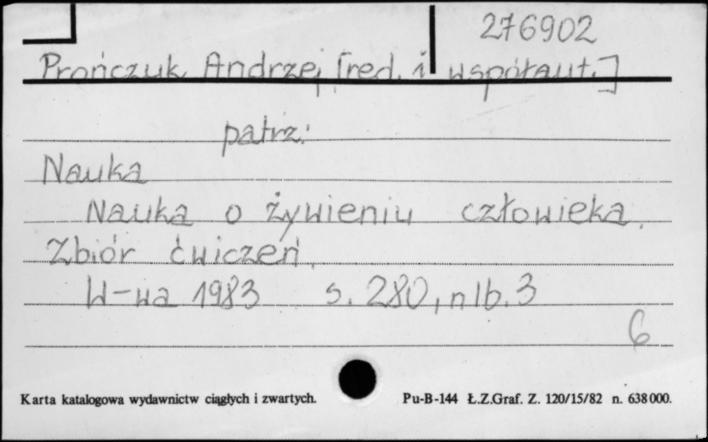 276902
Prończuk Andrzej [red. i współaut.]
patrz:
Nauka
Nauka o żywieniu człowieka.
Zbiór ćwiczeń.
W-wa 1983 s. 280, nlb. 3
6
Karta katalogowa wydawnictw ciągłych i zwartych. Pu-B-144 Ł.Z.Graf. Z. 120/15/82 n. 638000.